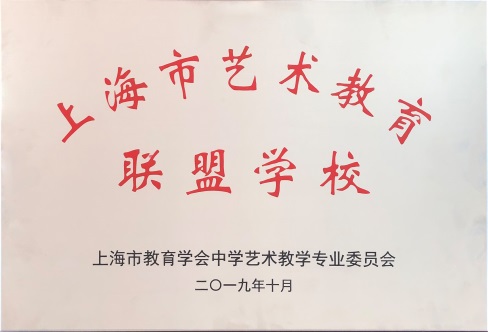 上海市艺术教育
联盟学校
上海市教育学会中学艺术教学专业委员会
二〇一九年十月